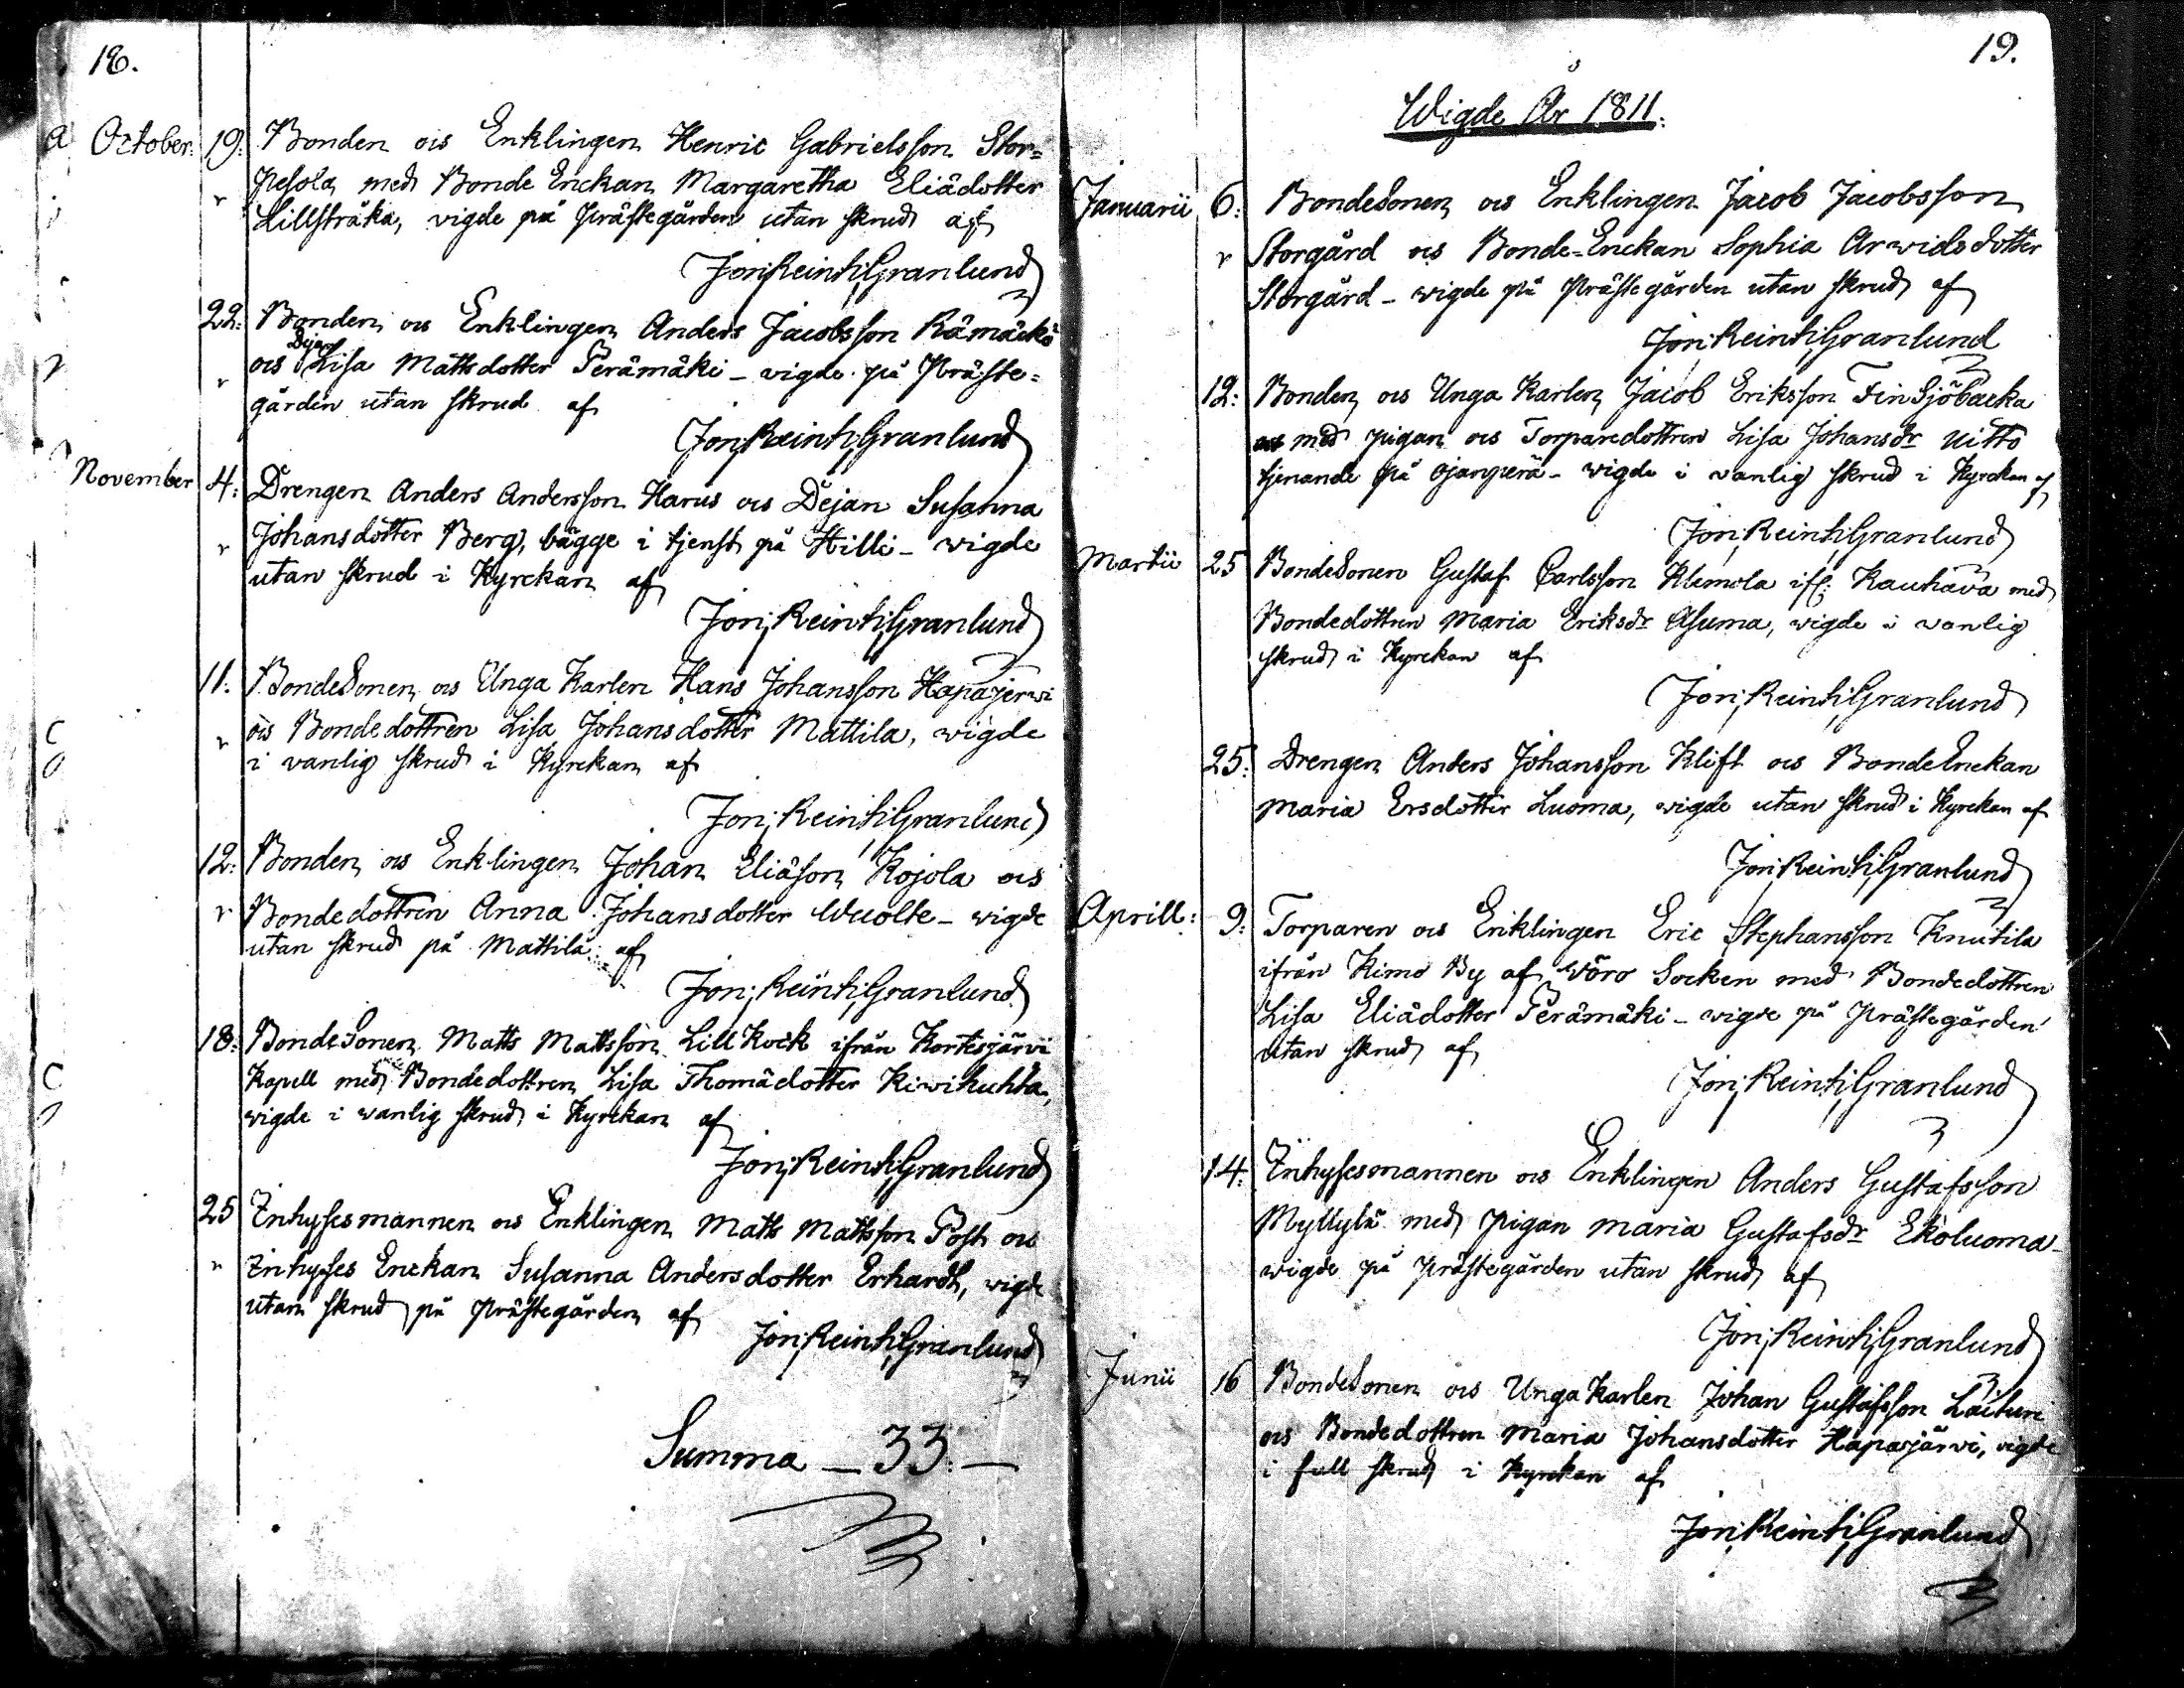 18.
October: 19: Bonden ois Enklingen Henric Gabrielsson Stor=
Pesola med Bonde Enckan Margaretha Eliädotter
Lillsträka, vigde på Prästegården utan skrud af
Jon; Reinh; Granlund
22: Bonden ois Enklingen Anders Jacobsson Rämäckö
Dejan
ois Lisa Mattsdotter Perämäki – vigde på Präste=
gården utan skrud af
Jon; Reinh; Granlund
November 4: Drengen Anders Andersson Harus ois Dejan Susanna
Johansdotter Berg, bägge i tjenst på Hilli – vigde
utan skrud i Kyrckan af
Jon; Reinh; Granlund
11. BondeSonen ois Unga Karlen Hans Johansson Hapajerwi
ois Bondedottren Lisa Johansdotter Mattila, wigde
i vanlig skrud i Kyrckan af
Jon; Reinh; Granlund
12: Bonden ois Enklingen Johan Eliäson Kojola ois
Bondedottren Anna Johansdotter Wuolte – wigde
utan skrud på Mattila af
Jon; Reinh; Granlund
18: BondeSonen Matts Mattsson LillKock ifrån Kortesjärvi
Kapell med Bondedottren Lisa Thomädotter Kiwihuhta,
wigde i wanlig skrud i Kyrckan af
Jon; Reinh; Granlund
25 Inhysesmannen ois Enklingen Matts Mattsson Post ois
Inhyses Enckan Susanna Andersdotter Erhardt, wigde
utan skrud på Prästegården af
Jon; Reinh; Granlund
Summa – 33. –
19.
Wigde År 1811.
Januarii 6: BondeSonen ois Enklingen Jacob Jacobsson
Storgård ois Bonde=Enckan Sophia Arwidsdotter
Storgård – wigde på Prästegården utan skrud af
Jon; Reinh; Granlund
12: Bonden ois Unga Karlen Jacob Eriksson FinSjöbacka
med pigan ois Torparedottren Lisa Johansdr Uitto
tjenande på Ojanperä – wigde i vanlig skrud i Kyrckan af
Jon; Reinh; Granlund
Martii 25 BondeSonen Gustaf Carlsson Klemola ifr: Kauhava med
Bondedottren Maria Eriksdr Asuma, wigde i vanlig
skrud i Kyrckan af
Jon; Reinh; Granlund
25: Drengen Anders Johansson Klift ois BondeEnckan
Maria Ersdotter Luoma, wigde utan skrud i Kyrckan af
Jon; Reinh; Granlund
Aprill: 9: Torparen ois Enklingen Eric Stephansson Knutila
ifrån Kimo By af Wörö Socken med Bondedottren
Lisa Eliädotter Perämäki – wigde på Prästegården
utan skrud af
Jon; Reinh; Granlund
14: Inhysesmannen ois Enklingen Anders Gustafsson
Myllylä med Pigan Maria Gustafsdr Ekoluoma –
wigde på Prästegården utan skrud af
Jon; Reinh; Granlund
Junii 16 BondeSonen ois Unga Karlen Johan Gustafsson Laituri
ois Bondedottren Maria Johansdotter Hapajärvi, vigde
i full skrud i Kyrckan af
Jon; Reinh; Granlund